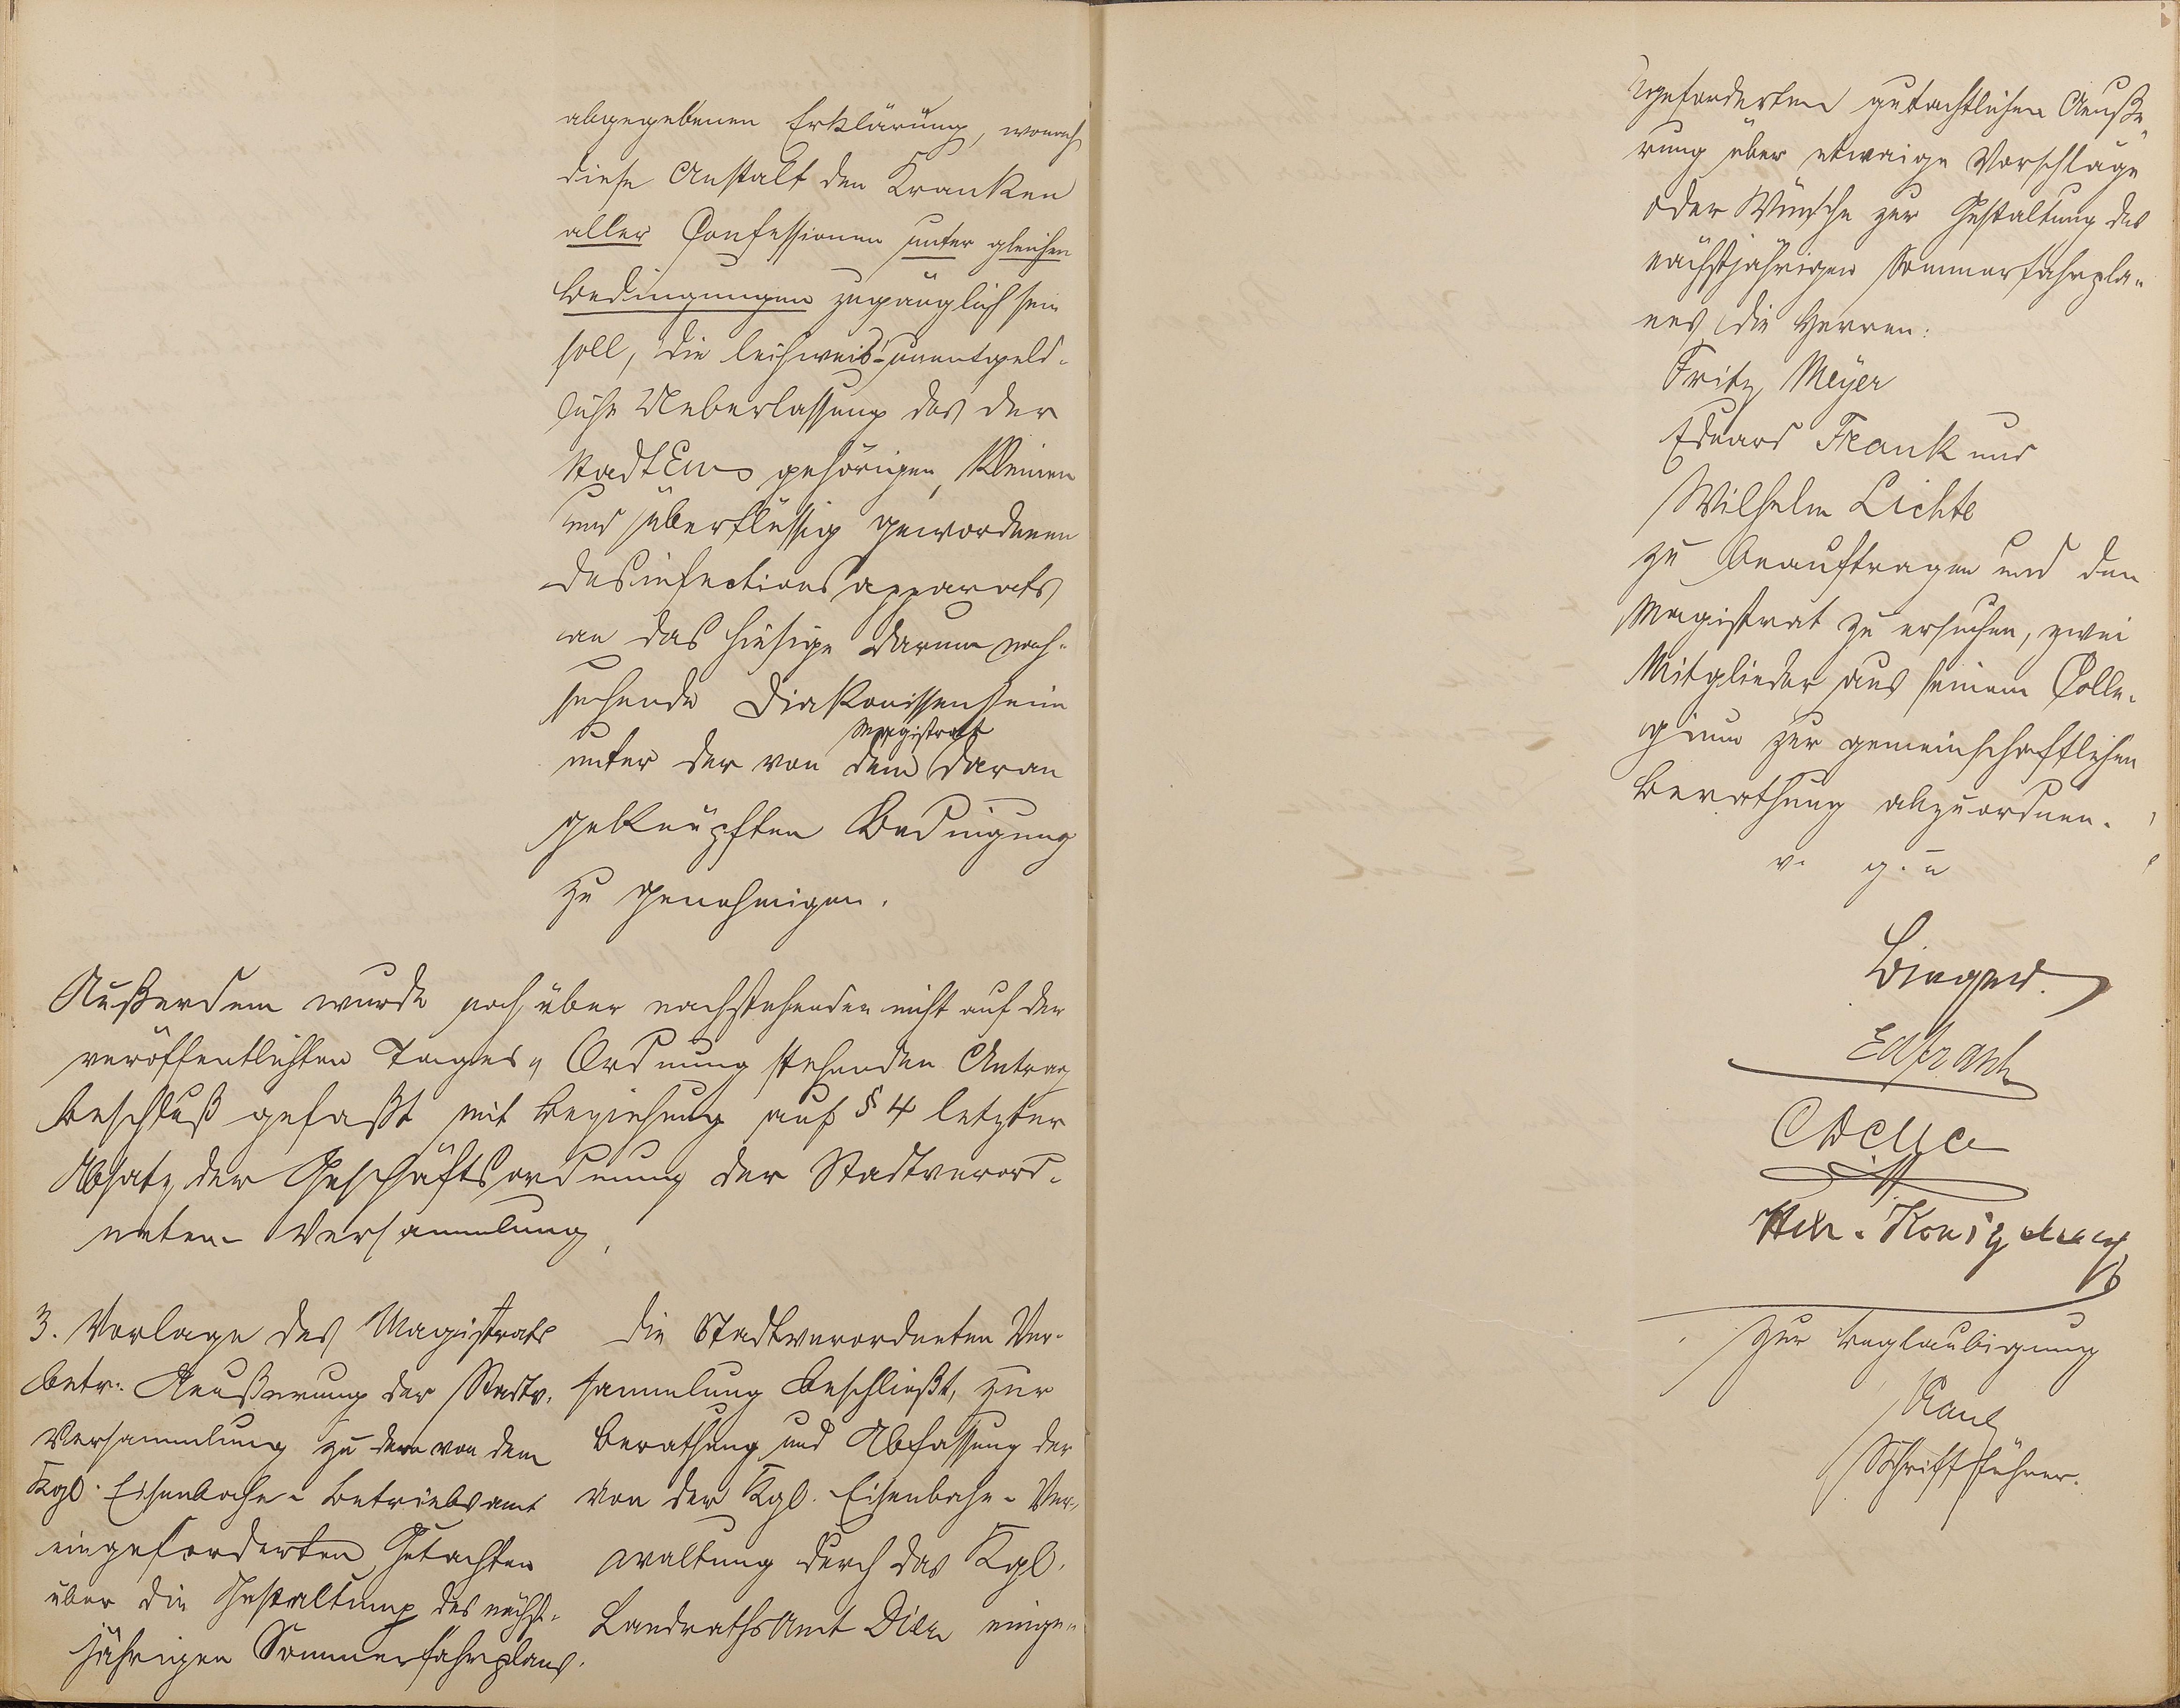 abgegebenen Erklärung, wonach
diese Anstalt den Kranken
aller Confessionen unter gleichen
Bedingungen zugänglich sein
soll, die leihweis-unentgeld-
liche Ueberlassung des der
Stadt Ems gehörigen, kleinen
und überflüssig gewordenen
Desinfectionsapparats
an das hiesige darum nach-
suchende Diakonissenheim
unter der von dem Magistrat daran
geknüpften Bedingung
zu genehmigen.
Außerdem wurde noch über nachstehenden nicht auf der
veröffentlichten Tages-Ordnung stehenden Antrag
Beschluß gefaßt mit Beziehung auf § 4 letzter
Absatz der Geschäftsordnung der Stadtverord-
neten-Versammlung.
3. Vorlage des Magistrats
betr. Aeußerung der Stadtv.
Versammlung zu dem von dem
Kgl. Eisenbahn-Betriebsamt
eingeforderten Gutachten
über die Gestaltung des nächst-
jährigen Sommerfahrplans.
Die Stadtverordneten Ver-
sammlung beschließt, zur
Berathung und Abfassung der
von der Kgl. Eisenbahn-Ver-
waltung durch das Kgl.
Landraths Amt Diez einge-
geforderten gutachtlichen Aeuße-
rung über etwaige Vorschläge
oder Wünsche zur Gestaltung des
nächstjährigen Sommerfahrpla-
nes die Herren:
Fritz Meyer
Eduard Frank und
Wilhelm Lichte
zu beauftragen und den
Magistrat zu ersuchen, zwei
Mitglieder aus seinem Colle-
gium zur gemeinschaftlichen
Berathung abzuordnen.
v. g. u
Ed Frank
Zur Beglaubigung
Schriftführer.